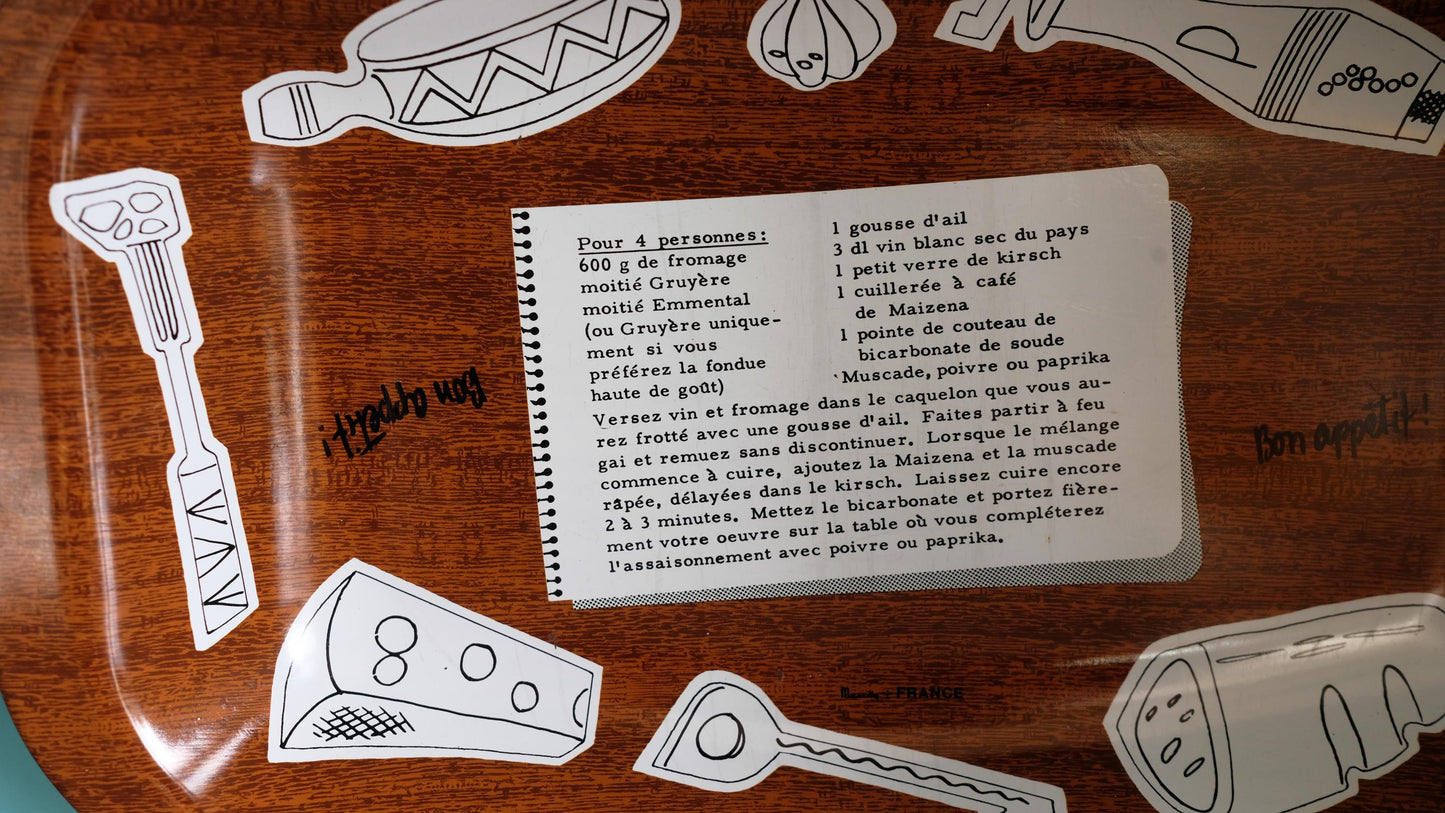 Pour 4 personnes:
600 g de fromage
moitié Gruyère
moitié Emmental
(ou Gruyère unique-
ment si vous
préférez la fondue
haute de goût)
1 gousse d'ail
3 dl vin blanc sec du pays
1 petit verre de kirsch
1 cuillerée à café
de Maizena
1 pointe de couteau de
bicarbonate de soude
Muscade, poivre ou paprika
Versez vin et fromage dans le caquelon que vous au-
rez frotté avec une gousse d'ail. Faites partir à feu
gai et remuez sans discontinuer. Lorsque le mélange
commence à cuire, ajoutez la Maizena et la muscade
râpée, délayées dans le kirsch. Laissez cuire encore
2 à 3 minutes. Mettez le bicarbonate et portez fière-
ment votre oeuvre sur la table où vous compléterez
l'assaisonnement avec poivre ou paprika.
Bon appétit!
Bon appétit!
FRANCE